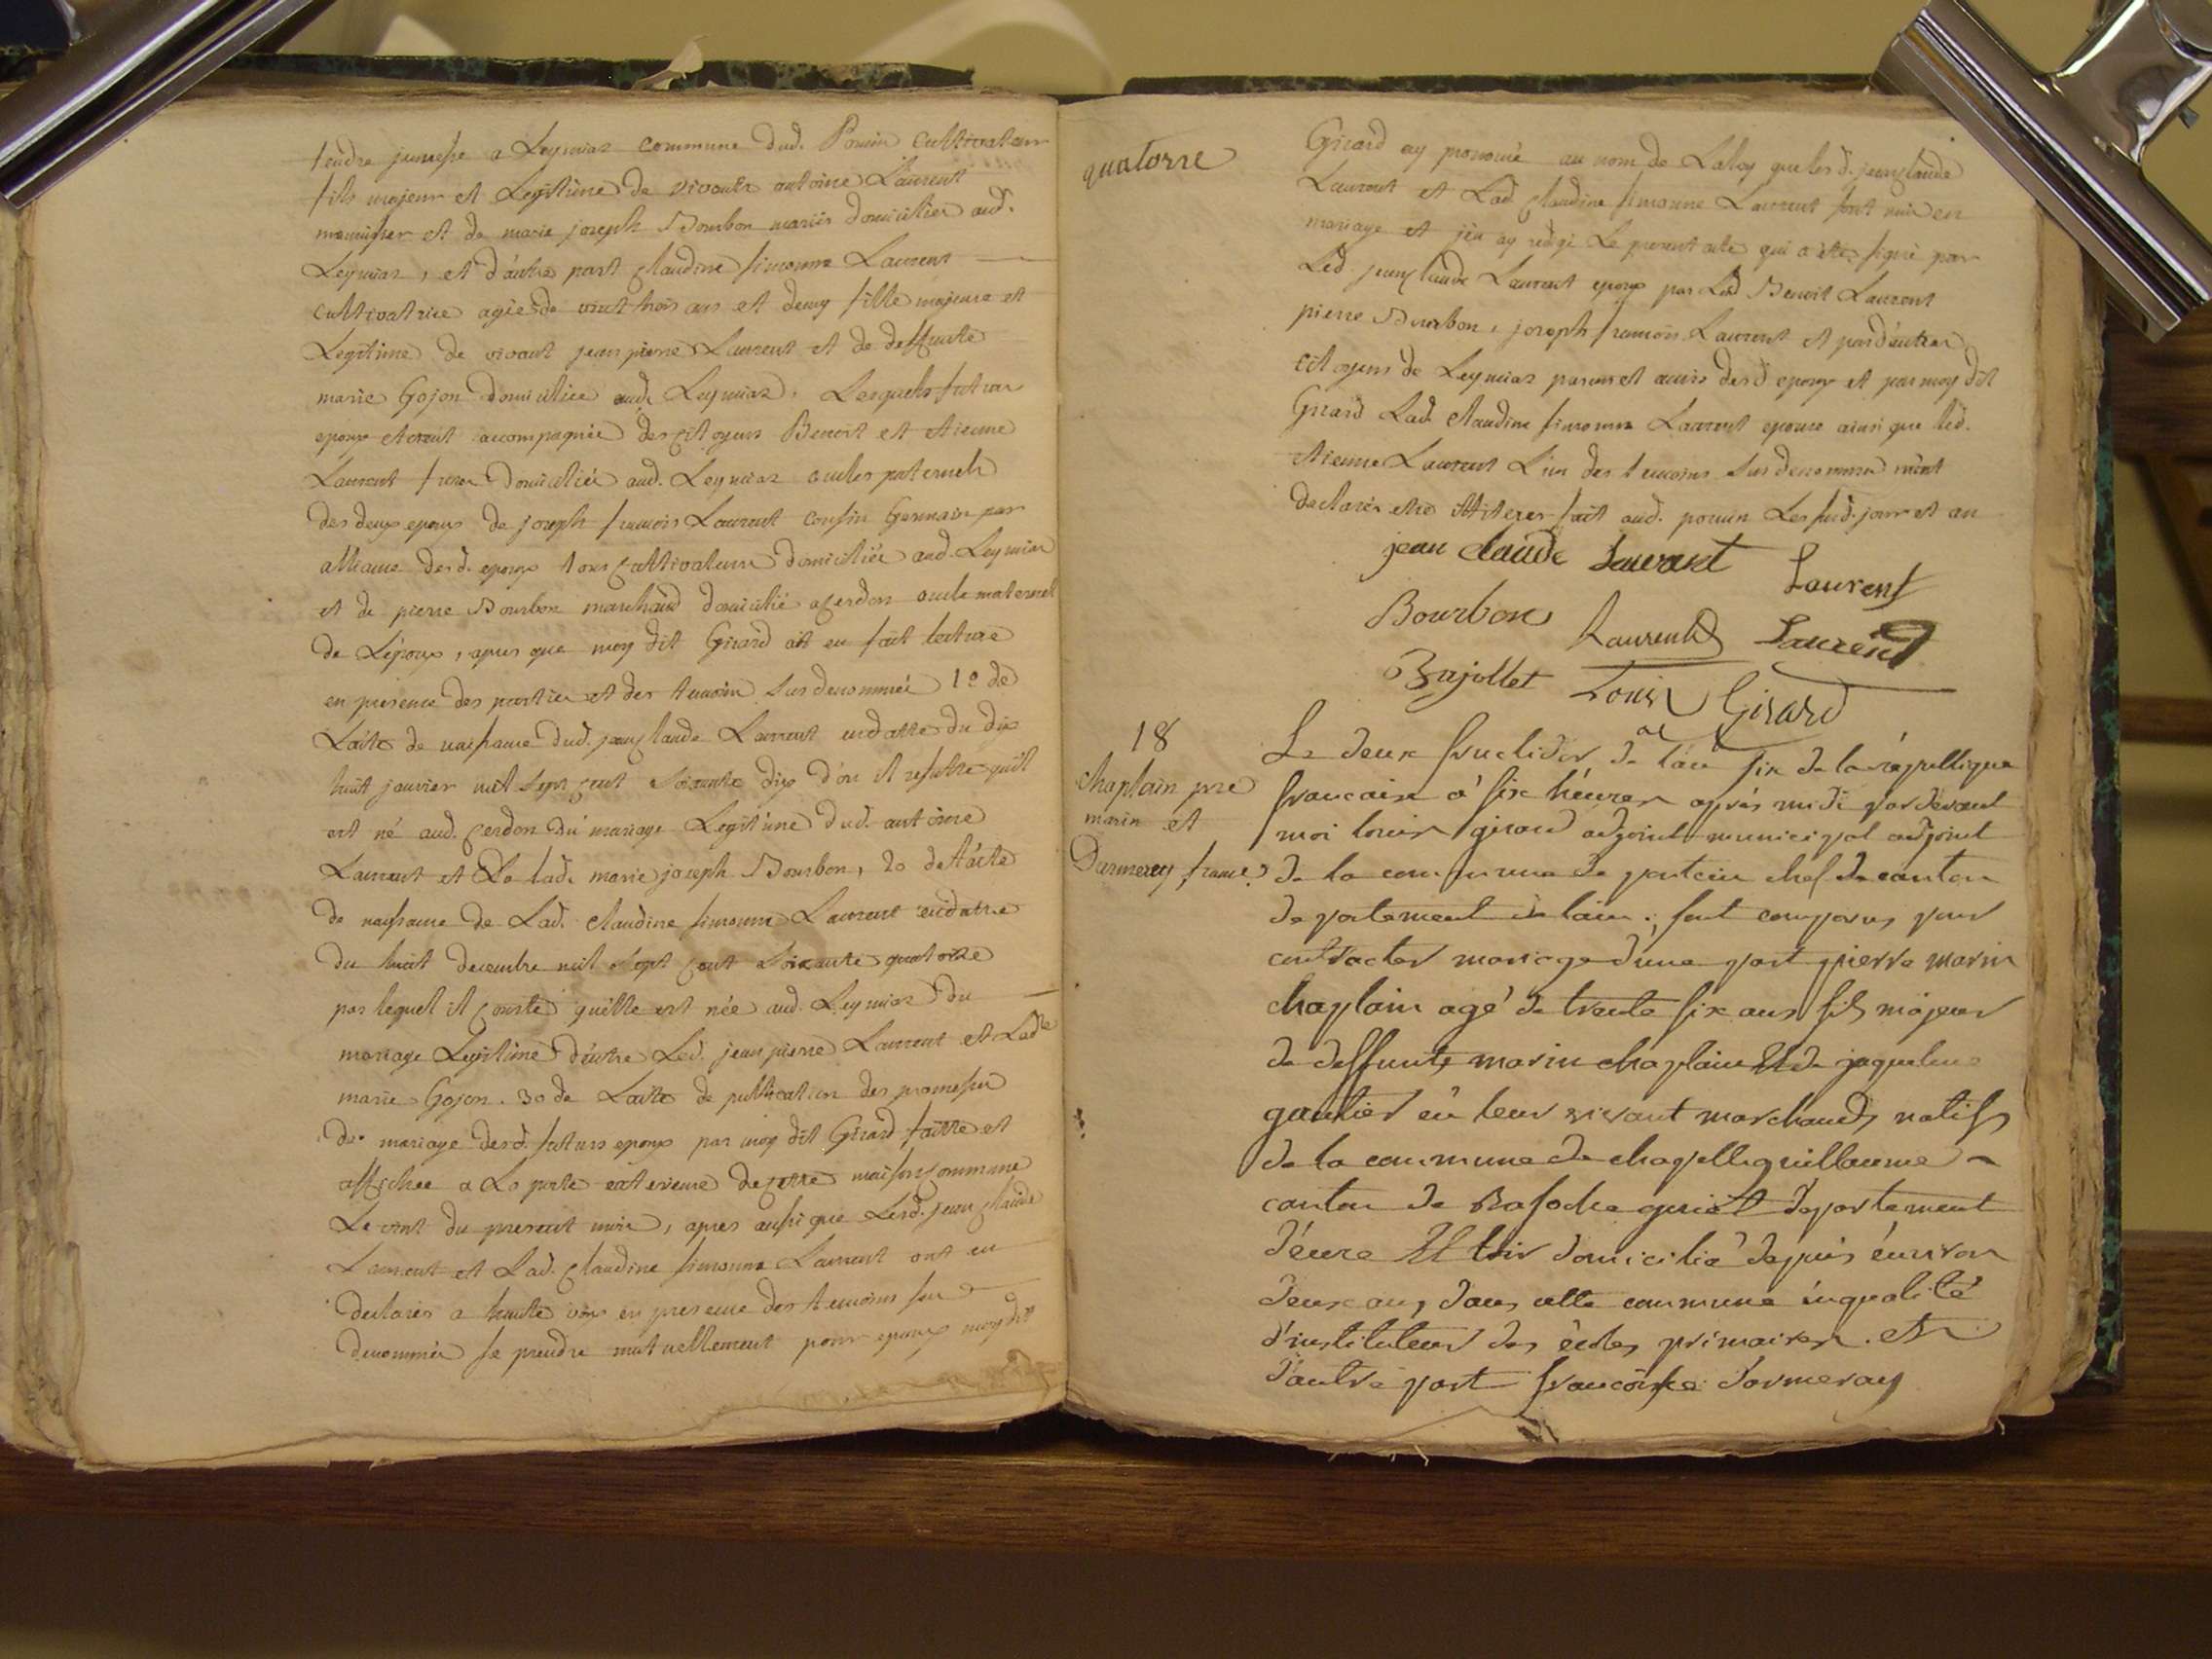 tendre jeunesse a Leymiaz commune dud. Poncin cultivateur
fils majeur et Legitime de vivants antoine Laurent
menuisier et de marie joseph Bourbon mariés domicilier aud.
Leymiaz, et d'autre part claudine simonne Laurent
cultivatrice agée de vint trois ans et demy fille majeure et
Legitime de vivant jean pierre Laurent et de deffunte
marie Gojon domiciliée aud. Leymiaz. Lesquels futur
epoux etoient accompagnée des citoyens Benoit et etienne
Laurent frere domiciliée aud. Leymiaz oncles paternels
des deux epoux de joseph francois Laurent cousin Germain par
alliance desd. epoux tous cultivateurs domiciliée aud. Leymiaz
et de pierre Bourbon marchand domicilié a cerdon oncle maternel
de L'époux, apres que moy dit Girard ait eu fait lecture
en presence des parties et des temoins sus denommée 1o de
L'acte de naissance dud. jean claude Laurent en datte du dix
huit janvier mil sept cent soixante dix d'ou il resulte qu'il
est né aud. cerdon du mariage Legitime dud. antoine
Laurent et de lad. marie joseph Bourbon, 2o de L'acte
de naissance de Lad. claudine simonne Laurent en datte
du huit decembre mil sept cent soixante quatorze
par lequel il conste qu'elle est née aud. Leymiaz du
mariage Legitime d'entre Led. jean pierre Laurent et Ladte
marie Gojon. 3o de L'acte de publication des promesses
de mariage desd. futurs epoux par moy dit Girard faitte et
affichee a La porte exterieure de cette maison commune
Le vint du present mois, apres aussi que Lesd. jean claude
Laurent et Lad. claudine simonne Laurent ont eu
declarés a haute voix en presence des temoins sus
denommée se prendre mutuellement pour epoux moy dit
quatorze
Girard ay prononcé au nom de La loy que les d. jean claude
Laurent et Lad. claudine simonne Laurent sont unis en
mariage et j'en ay redigé Le present acte qui a été signé par
Led. jean claude Laurent epoux par Led Benoit Laurent
pierre Bourbon, joseph francois Laurent et par d'autres
citoyens de Leymiaz parens et amis desd epoux et par moy dit
Girard Lad. claudine simonne Laurent epouse ainsi que led.
etienne Laurent L'un des temoins sus denommée m'ont
declarés etre illiterer fait aud. poncin Les susd. jour et an
jean claude Laurent Laurent
Bourbon Laurent Laurent
Bajollet Louis Girard
18
chaplain pre
marin et
Darmerey france.
Le deux fructidor de l'an six de la républlique
francaise à six héures aprés midi pardevant
moi louis girard adjoint municipal adjoint
de la commune de poncin chef de canton
departement de lain; sont comparus pour
contracter mariage d'une part pierre marin
chaplain agé de trente six ans fils majeur
de deffunts marin chaplain Et de jaqueline
gautier en leur vivant marchands natifs
de la commune de chapelleguillaume
canton de Basoche goüet departement
d'éure Et loir domicilié depuis énviron
deux ans dans cette commune en qualité
d'instituteur des écoles primaires. Et
d'autre part francoise darmeray